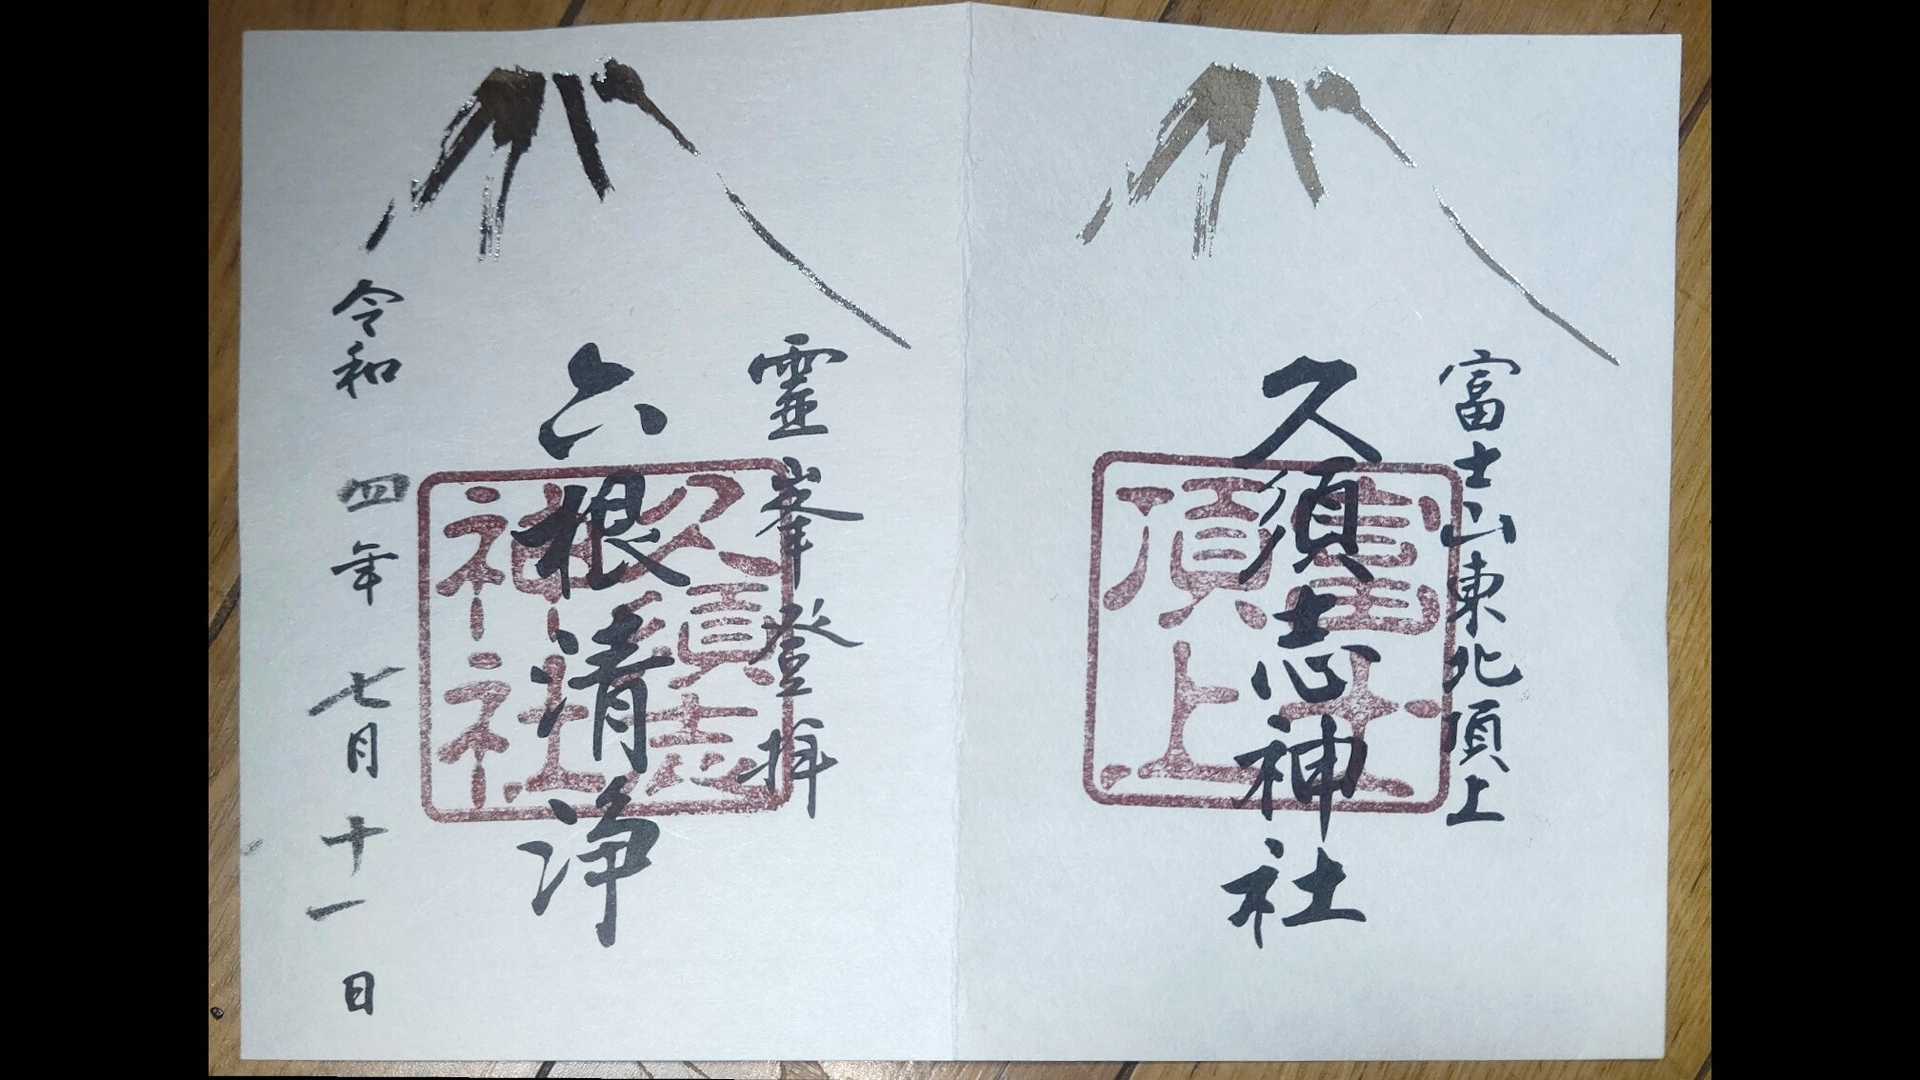 富士山東北頂上
久須志神社
富士
頂上
靈峯登拝
六根清浄
久須志
神社
令和四年七月十一日